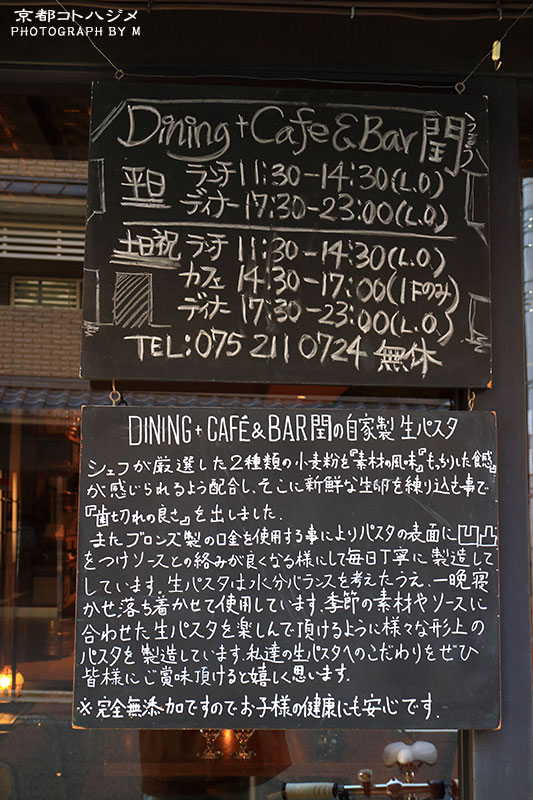 京都コトハジメ
PHOTOGRAPH BY M
Dining + Cafe & Bar 閏 うるう
平日 ランチ 11:30-14:30(L.O.)
ディナー 17:30-23:00(L.O.)
土日祝 ランチ 11:30-14:30(L.O.)
カフェ 14:30-17:00(1Fのみ)
ディナー 17:30-23:00(L.O.)
TEL:075 211 0724 無休
DINING + CAFÉ & BAR 閏の自家製 生パスタ
シェフが厳選した2種類の小麦粉を『素材の風味』『もっちりした食感』
が感じられるよう配合し、そこに新鮮な生卵を練り込む事で
『歯切れの良さ』を出しました.
またブロンズ製の口金を使用する事によりパスタの表面に凹凸
をつけソースとの絡みが良くなる様にして毎日丁寧に製造して
しています.生パスタは水分バランスを考えたうえ、一晩寝
かせ落ち着かせて使用しています.季節の素材やソースに
合わせた生パスタを楽しんで頂けるように様々な形上の
パスタを製造しています.私達の生パスタへのこだわりをぜひ
皆様にご賞味頂けると嬉しく思います.
※完全無添加ですのでお子様の健康にも安心です.